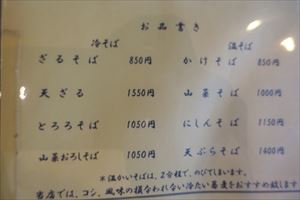 お品書き
冷そば 温そば
ざるそば 850円 かけそば 850円
天ざる 1550円 山菜そば 1000円
とろろそば 1050円 にしんそば 1150円
山菜おろしそば 1050円 天ぷらそば 1400円
＊温かいそばは、2分程で、のびてしまいます。
当店では、コシ、風味の損なわれない冷たい蕎麦をおすすめ致します